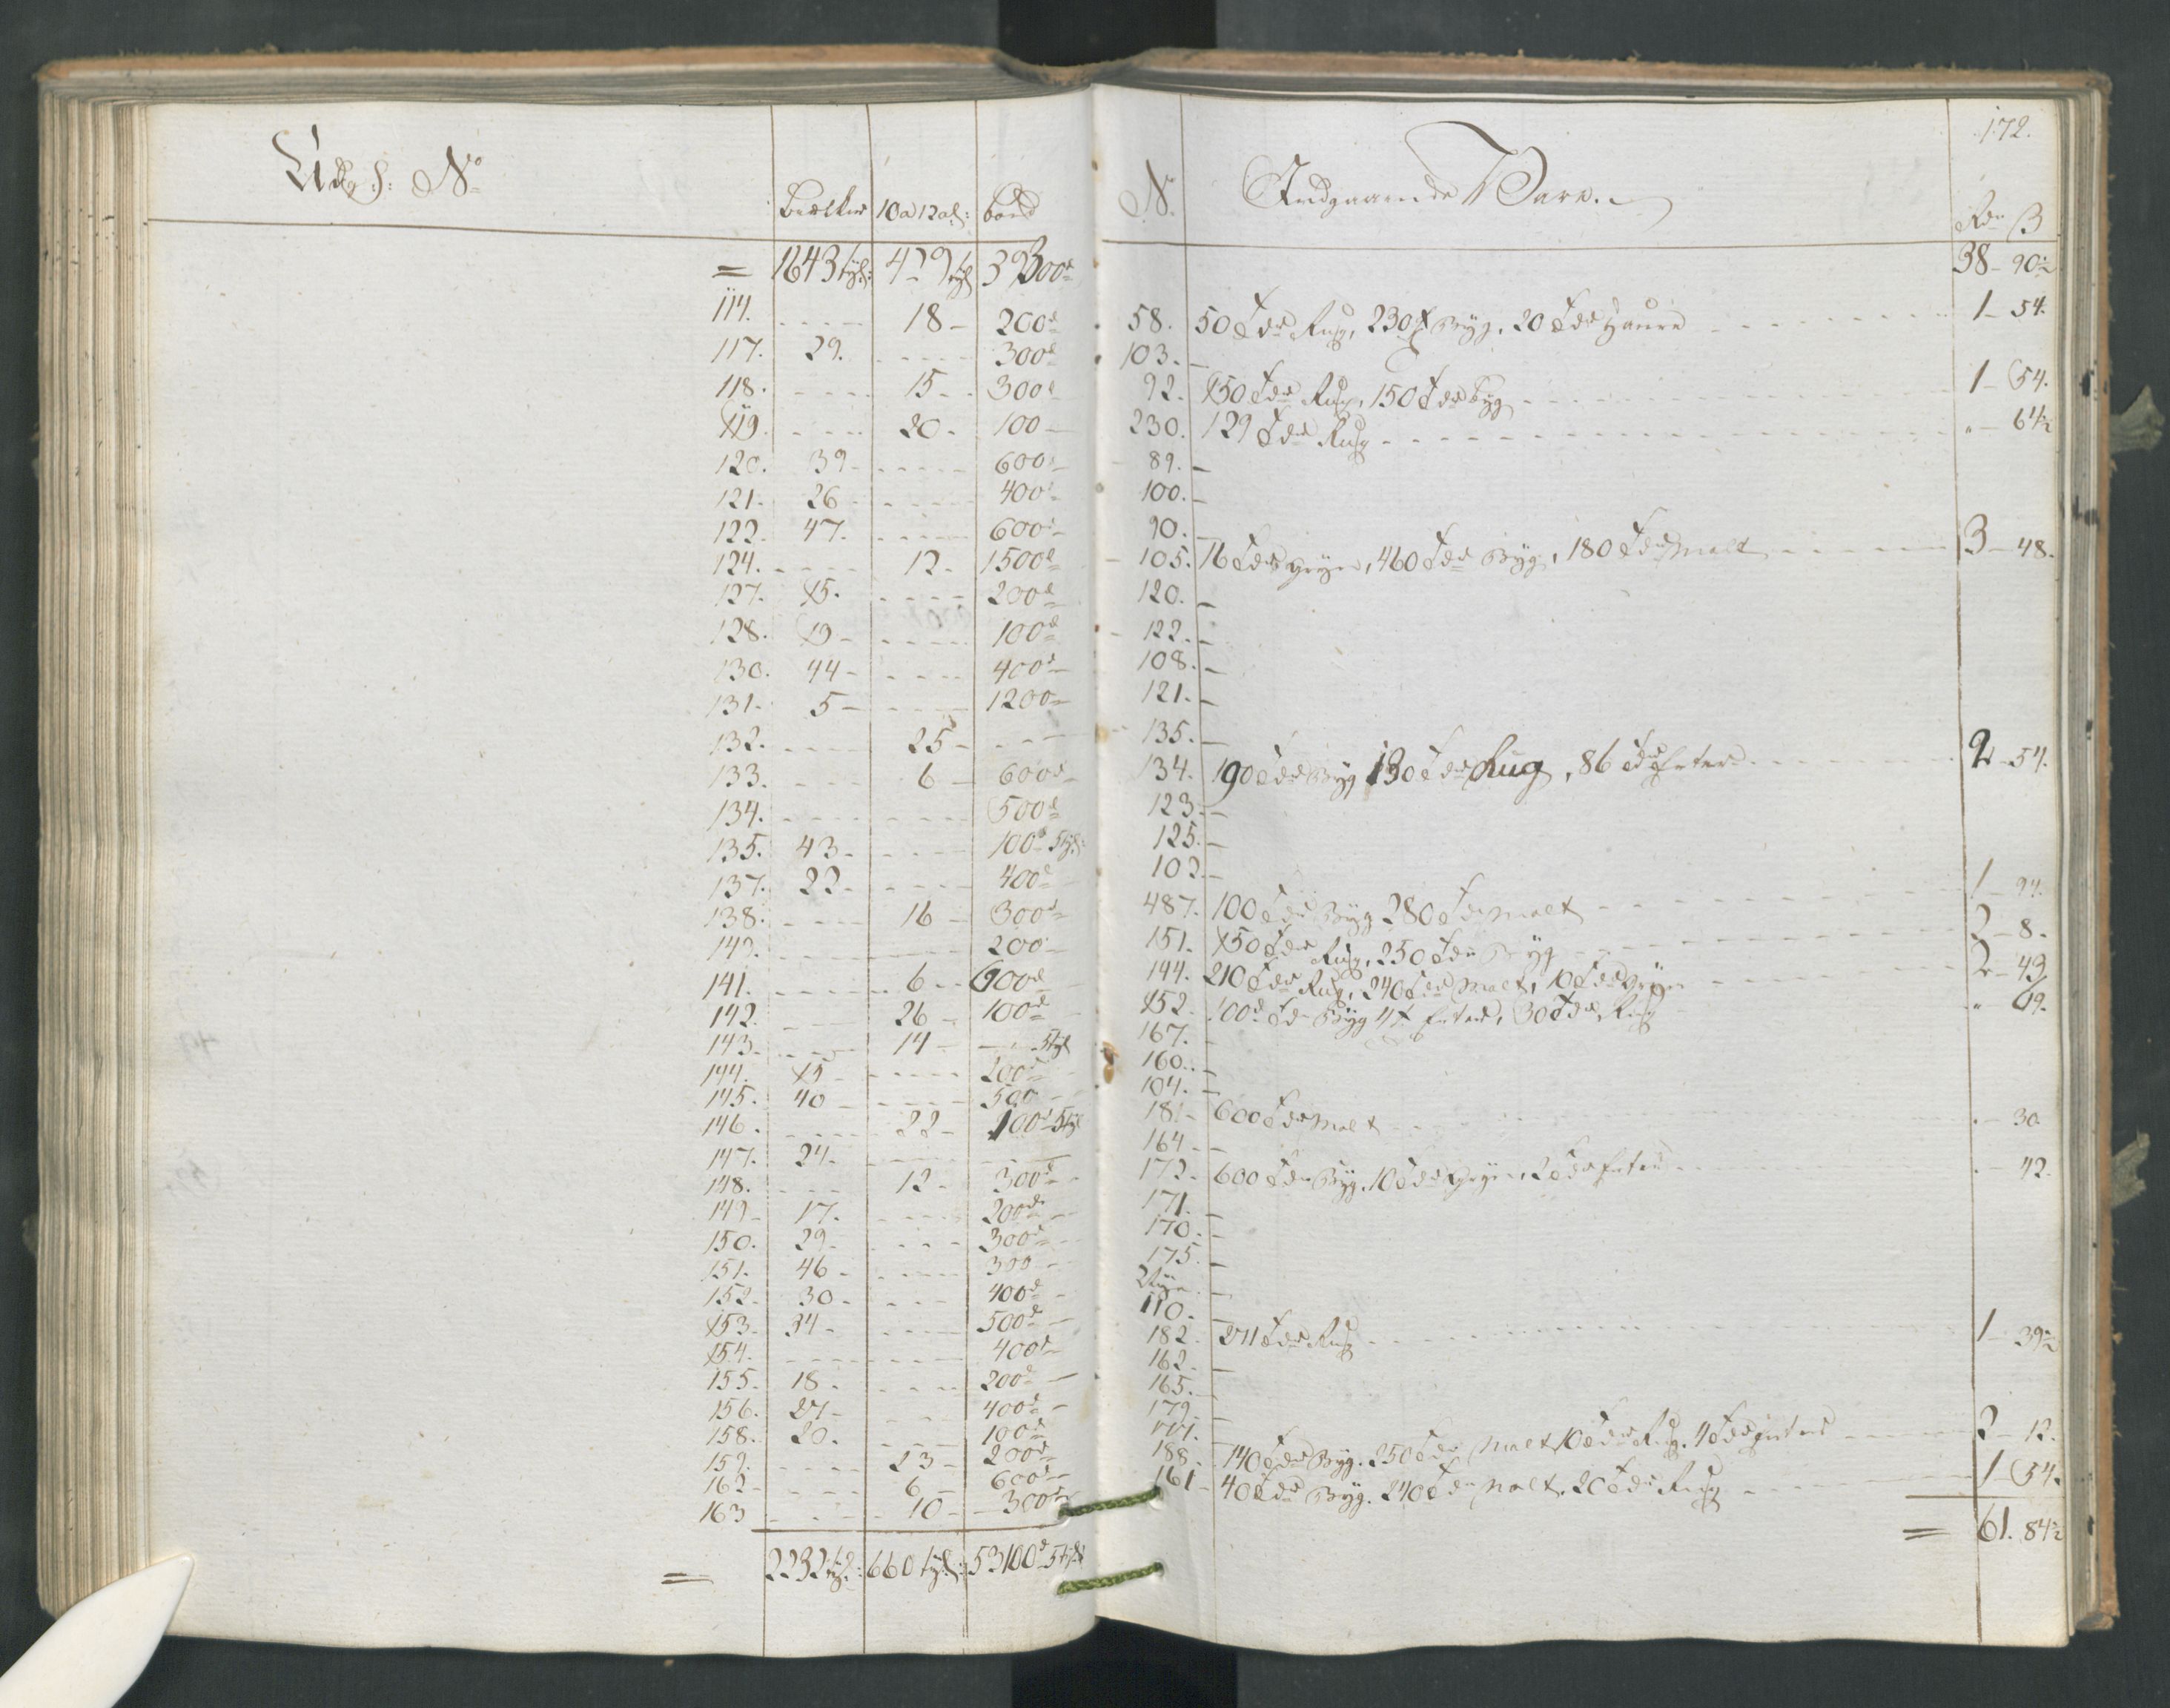 Udg: S: No
Bielker 10 a 12 al: bord
= 1643 tÿl: 429 tÿl 39300d
114. 18 - 200d
117. 29. 300d
118. 15 - 300d
119. 20 - 100 -
120. 39 - 600d
121. 26 400d
122. 47. 600d
124. 12. 1500d
127. 15. 200d
128. 19 - 100d
130. 44 - 400d
131. 5 - 1200 -
132. 25 -
133. 6 - 600d
134. 500d
135. 43 - 100d 5 tÿl:
137. 22 - 400d
138. 16 - 300d
140. 200 -
141. 6 - 900d
142. 26 - 100d
143. 14 - 5 tÿl
144. 15 - 200d
145. 40 - 500
146. 22 - 100d 5 tÿl
147. 24.
148. 12 - 300d
149 - 17. 200d
150. 29 - 300d
151. 46 - 300
152. 30 - 400d
153. 34 - 500d
154. 400d
155. 18. 200d
156. 27 - 400d
158. 20. 100d
159. 23 - 200d
162 - 6 - 600d
163 10 - 300d
= 2232 tÿl: 660 tÿl: 53100d 5 tÿl:
172.
N. Indgaaende Vare.
Rdr ß
38 - 90½
58. 50 Tdr Rug, 230 T Byg, 20 Tdr Haure 1 - 54.
103. -
92. 150 Tdr Rug, 150 Tdr Byg 1 - 54.
230. 129 Tdr Rug " - 61½
89. -
100. -
90. -
105. 16 Tdr Gryn, 460 Tdr Byg, 180 Tdr Malt 3 - 48.
120. -
122. -
108. -
121. -
135. -
134. 190 Tdr Byg 130 Tdr Rug, 86 Tdr Erter 2 - 54.
123. -
125. -
102. -
487. 100 Tdr Byg 280 Tdr Malt 1 - 94.
151. 150 Tdr Rug, 250 Tdr Byg 2 - 8.
144. 210 Tdr Rug, 240 Tdr Malt, 10 Tdr Gryn 2 - 49
152. 100 Tdr Byg 4 T Erter, 30 Tdr Rug " 69.
167. -
160. -
104. -
181 - 600 Tdr Malt " - 30
164 - -
172. 600 Tdr Byg. 10 Tdr Gryn, 2 Tdr Erter 42.
171. -
170. -
175. -
110. -
182. 211 Tdr Rug 1 - 39½
162. -
165. -
179. -
188. 140 Tdr Byg. 250 Tdr Malt 10 Tdr Rug. 4 Tdr Erter 2 - 12.
161 - 40 Tdr Byg. 240 Tdr Malt. 20 Tdr Rug 1 - 54.
= 61. 84½